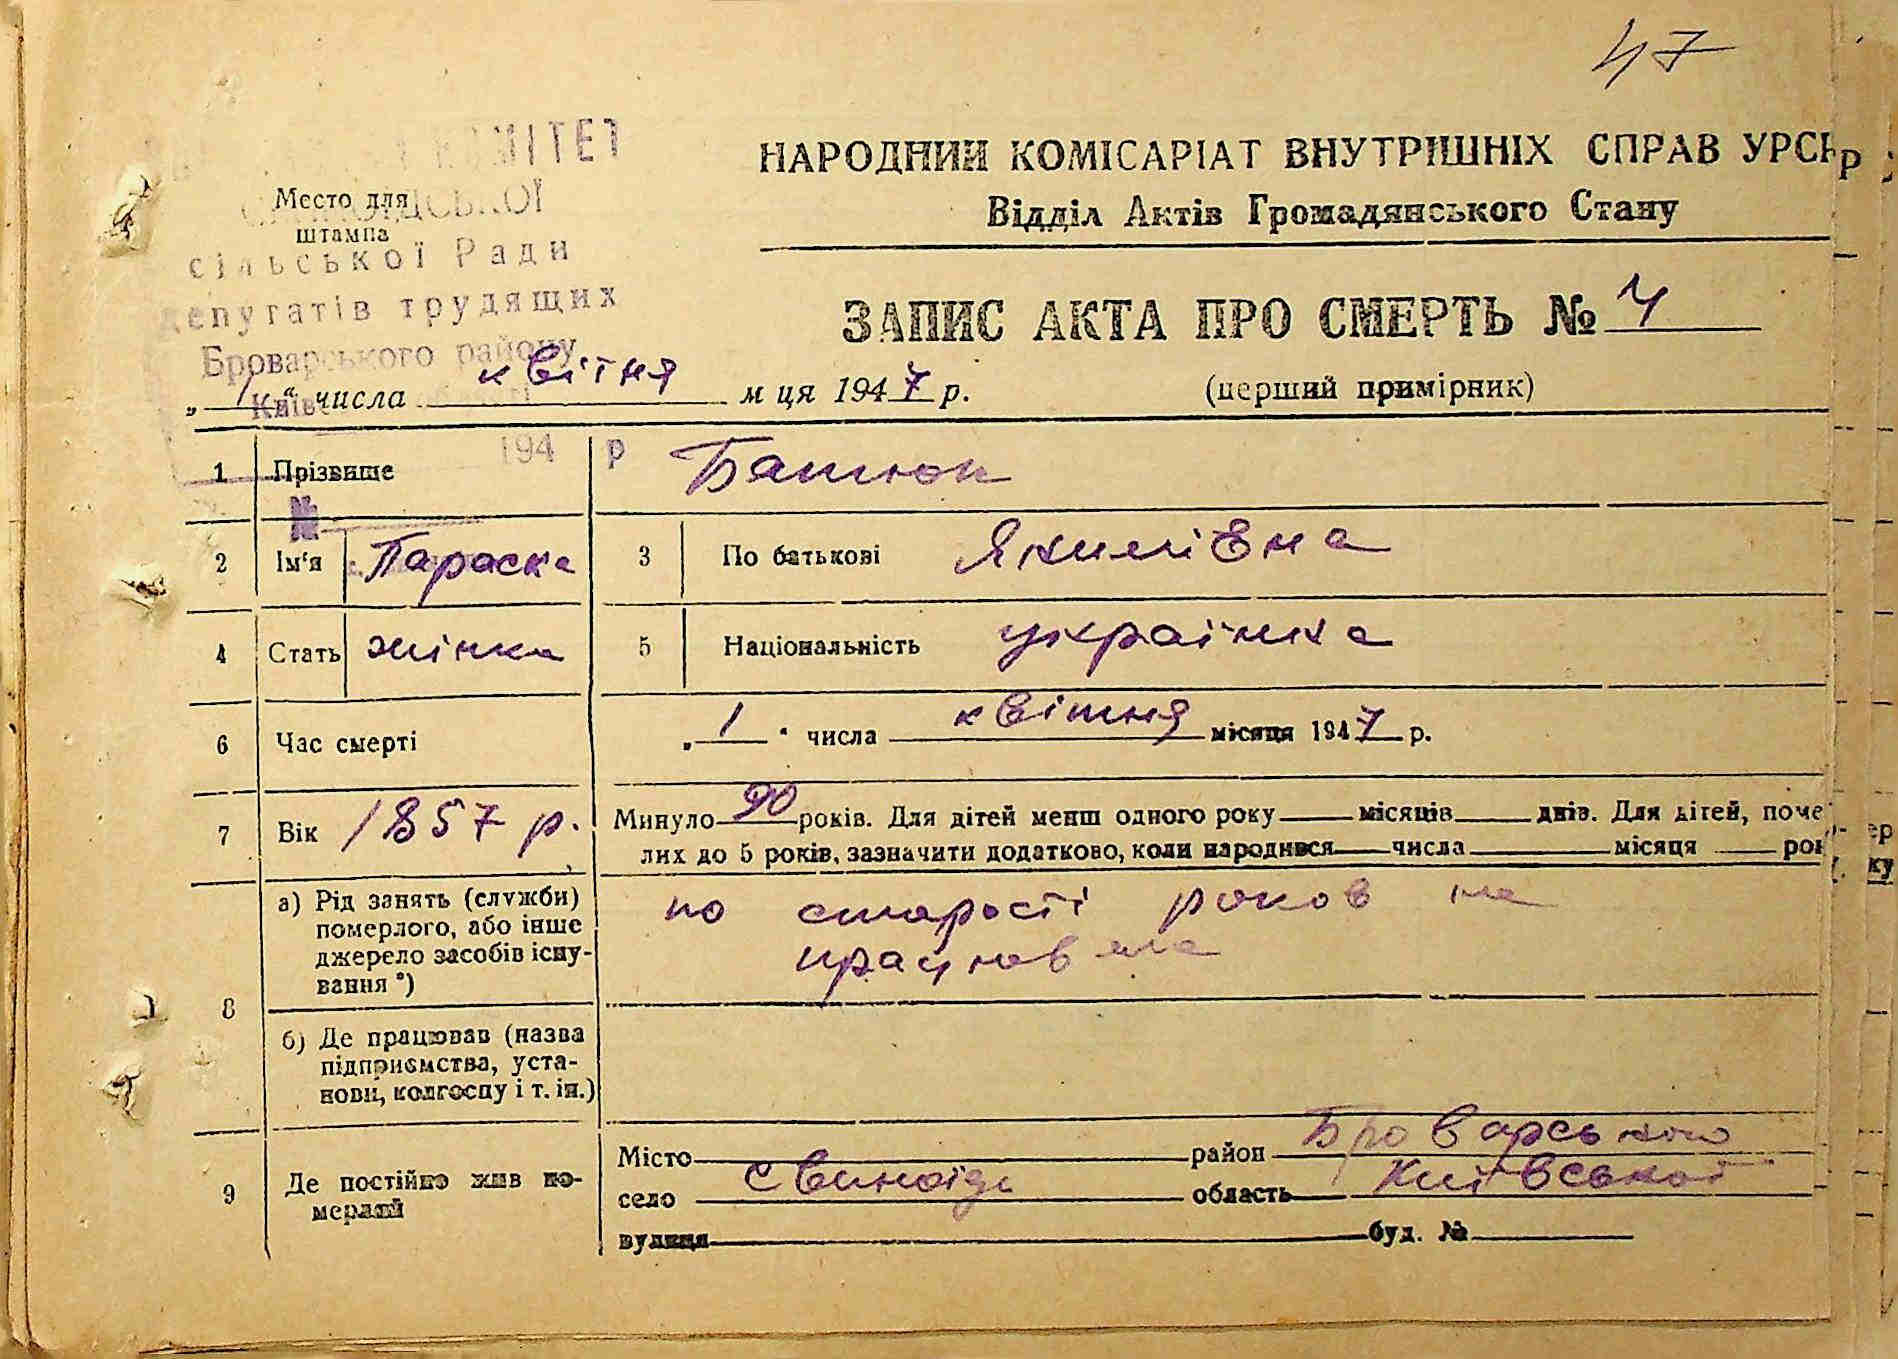 47
КОМІТЕТ
Место для
штампа
сільської Ради
депутатів трудящих
Броварського району
194 р
№
НАРОДНИЙ КОМІСАРІАТ ВНУТРІШНІХ СПРАВ УРСР
Відділ Актів Громадянського Стану
ЗАПИС АКТА ПРО СМЕРТЬ № 4
„ 1 “ числа квітня м ця 1947 р. (перший примірник)
1 Прізвище Батюк
2 Ім'я Параска 3 По батькові Якимівна
4 Стать жінка 5 Національність українка
6 Час смерті „ 1 “ числа квітня місяця 1947 р.
7 Вік 1857 р. Минуло 90 років. Для дітей менш одного року місяців днів. Для дітей, поме
лих до 5 років, зазначити додатково, коли народився числа місяця рок
8 а) Рід занять (служби)
померлого, або інше
джерело засобів існу-
вання *)
по старості роков не
працювала
б) Де працював (назва
підприємства, уста-
нови, колгоспу і т. ін.)
9 Де постійно жив по-
мерлий
Місто район Броварського
село Свиноїди область Київської
вулиця буд. №